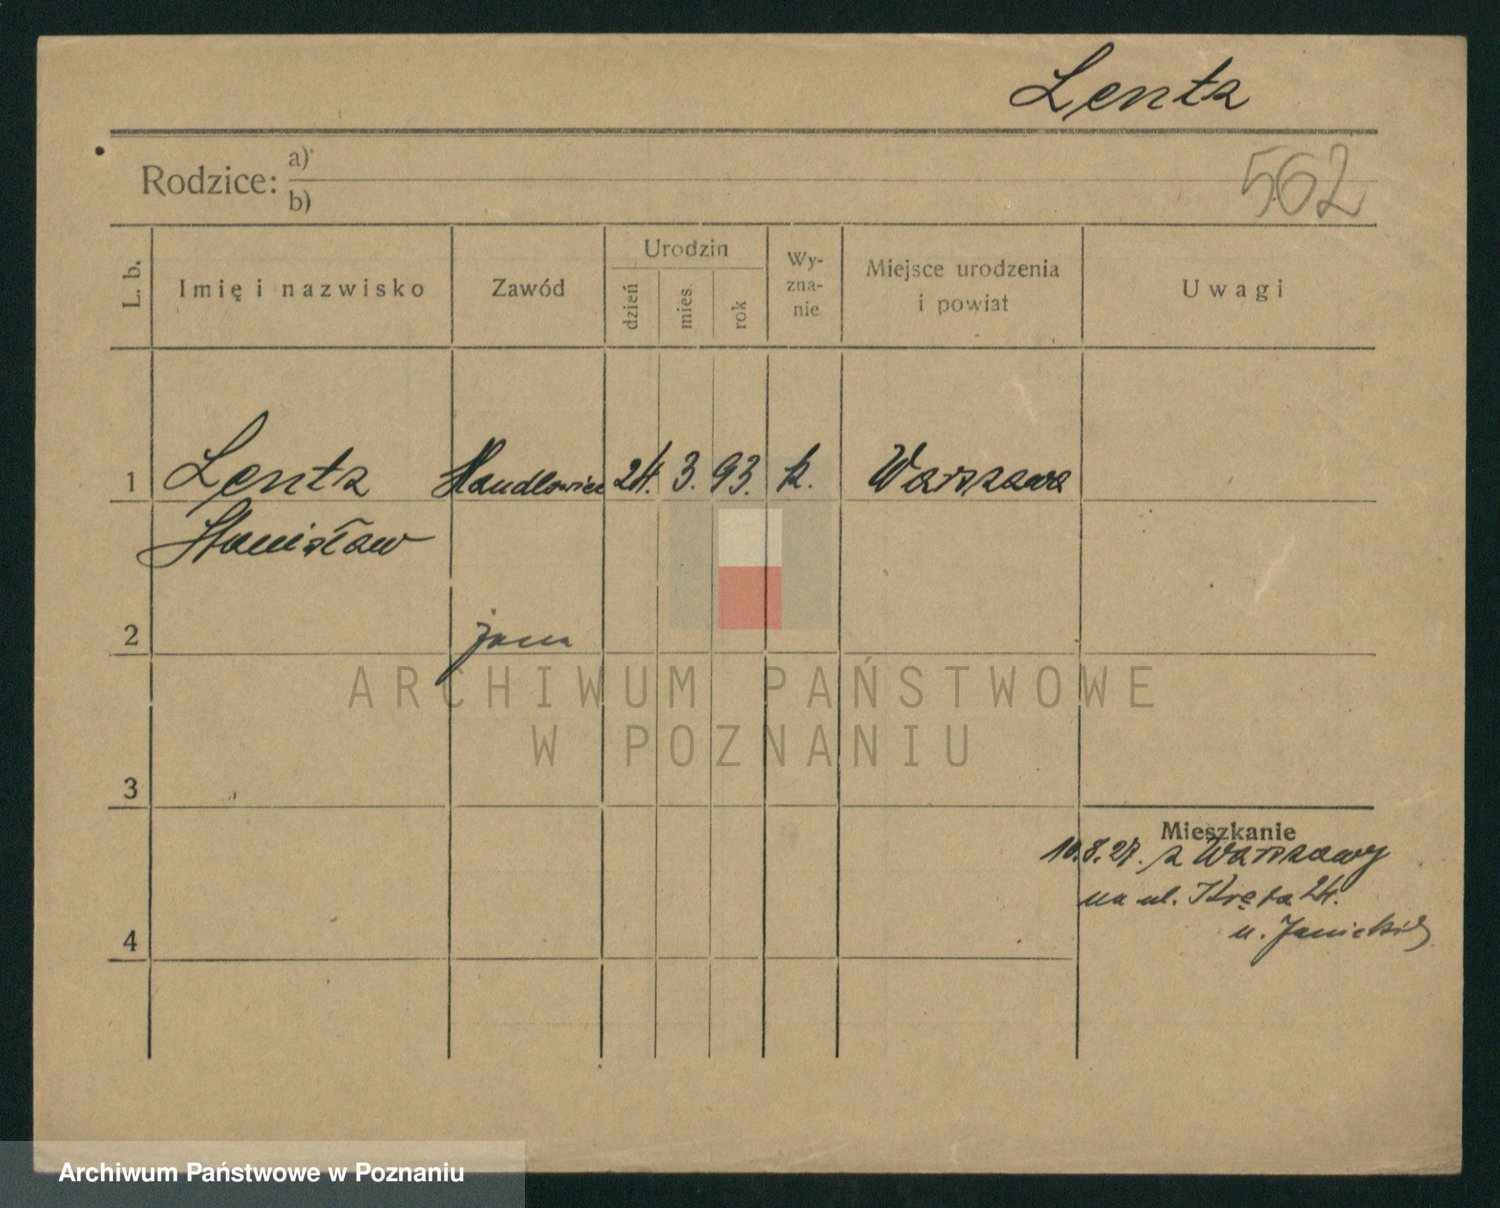 Lentz
562
Rodzice: a)
b)
L. b.
Imię i nazwisko
Zawód
Urodzin
dzień
mies.
rok
Wy-
zna-
nie
Miejsce urodzenia
i powiat
Uwagi
1 Lentz Handlowiec 24. 3. 93. k. Warszawa
Stanisław
2
3
4
Mieszkanie
10.8.27. z Warszawy
na ul. Kręta 24.
u. Janickich
ARCHIWUM PAŃSTWOWE
W POZNANIU
Archiwum Państwowe w Poznaniu